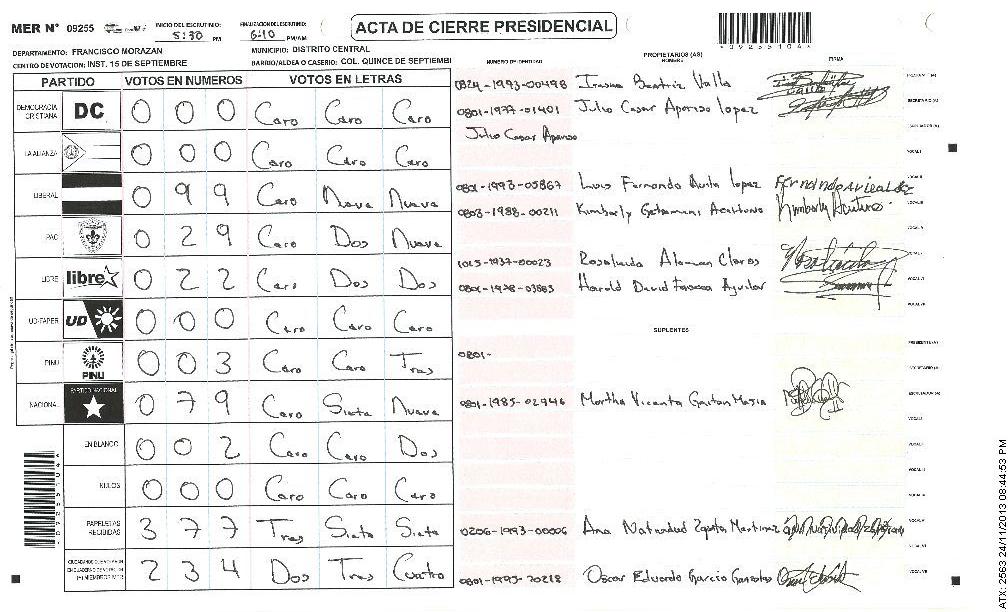 MER N° 09255 INICIO DEL ESCRUTINIO: 5:30 PM FINALIZACION DEL ESCRUTINIO: 6:10 PM/AM ACTA DE CIERRE PRESIDENCIAL
DEPARTAMENTO: FRANCISCO MORAZAN MUNICIPIO: DISTRITO CENTRAL
CENTRO DE VOTACION: INST. 15 DE SEPTIEMBRE BARRIO/ALDEA O CASERIO: COL. QUINCE DE SEPTIEMBRE
PARTIDO VOTOS EN NUMEROS VOTOS EN LETRAS
DEMOCRACIA CRISTIANA DC 0 0 0 Cero Cero Cero
LA ALIANZA 0 0 0 Cero Cero Cero
LIBERAL 0 9 9 Cero Nueve Nueve
PAC 0 2 9 Cero Dos Nueve
LIBRE libre 0 2 2 Cero Dos Dos
UD-FAPER UD 0 0 0 Cero Cero Cero
PINU PINU 0 0 3 Cero Cero Tres
NACIONAL PARTIDO NACIONAL 0 7 9 Cero Siete Nueve
EN BLANCO 0 0 2 Cero Cero Dos
NULOS 0 0 0 Cero Cero Cero
PAPELETAS RECIBIDAS 3 7 7 Tres Siete Siete
2 3 4 Dos Tres Cuatro
NUMERO DE IDENTIDAD PROPIETARIOS (AS) NOMBRE FIRMA
0801-1977-01401 Julio Cesar Aponso Lopez SECRETARIO (A)
Julio Cesar Aponso
0801-1993-05867 Luis Fernando Avila Lopez
0803-1988-00211 Kimberly
Rosalinda Aleman
Harold David Fonseca Aguilar
SUPLENTES
0801-
0801-1985-02946 Martha Vicenta Gaitan Mejia
0206-1993-00006 Ana Natividad Zapata Martinez
Oscar Eduardo Garcia Gonzales
ATX 2563 24/11/2013 08:44:53 PM